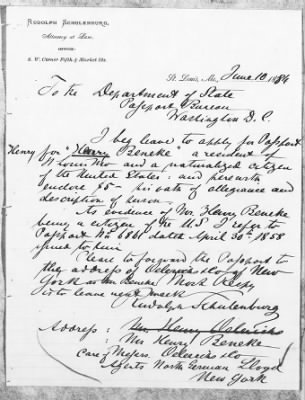 RUDOLPH SCHULENBURG,
Attorney at Law,
OFFICE:
S. W. Corner Fifth & Market Sts.
St. Louis, Mo., June 10, 1884
To the Department of State
Passport Bureau
Washington D. C.
I beg leave to apply for Passport
Henry for "Henry Beneke" a resident of
St Louis Mo and a naturalized citizen
of the United States: and herewith
enclose $5 - his oath of allegiance and
description of person.
As evidence of Mr. Henry Beneke
being a citizen of the U.S. I refer to
Passport No 6861 dated April 30th 1858
issued to him
Please to forward the Passport to
the address of Oelrichs & Co of New
York as Mr Beneke
is to leave next week
Rudolph Schulenburg
Address: Mr. Henry Oelrichs
Mr Henry Beneke
Care of Messrs. Oelrichs & Co
Agents North German Lloyd
New York